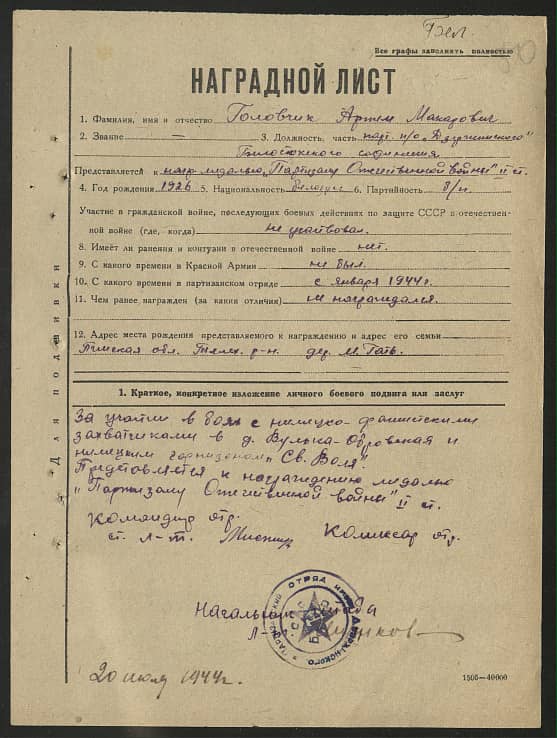 Бел.
Все графы заполнять полностью
НАГРАДНОЙ ЛИСТ
1. Фамилия, имя и отчество Головчик Артем Макарович
2. Звание — 3. Должность, часть парт. п/о „Дзержинского"
Белостокского соединения
Представляется к награ медалью „Партизану Отечественной войны" II ст.
4. Год рождения 1926 5. Национальность белорус 6. Партийность б/п.
Участие в гражданской войне, последующих боевых действиях по защите СССР в отечествен-
ной войне (где, когда) не участвовал.
8. Имеет ли ранения и контузии в отечественной войне нет.
9. С какого времени в Красной Армии не был.
10. С какого времени в партизанском отряде с января 1944 г.
11. Чем ранее награжден (за какия отличия) не награждался.
12. Адрес места рождения представляемого к награждению и адрес его семьи
Пинская обл. Телех. р-н. дер. М. Гать.
Для подшивки
1. Краткое, конкретное изложение личного боевого подвига или заслуг
За участие в боях с немецко-фашистскими
захватчиками в д. Вулька-Обровская и
немецким гарнизоном „Св. Воля"
Представляется к награждению медалью
„Партизану Отечественной войны" II ст.
Командир отр.
ст. л-т.
Комиссар отр.
Начальник штаба
Л-т
20 июля 1944 г.
1505—40000